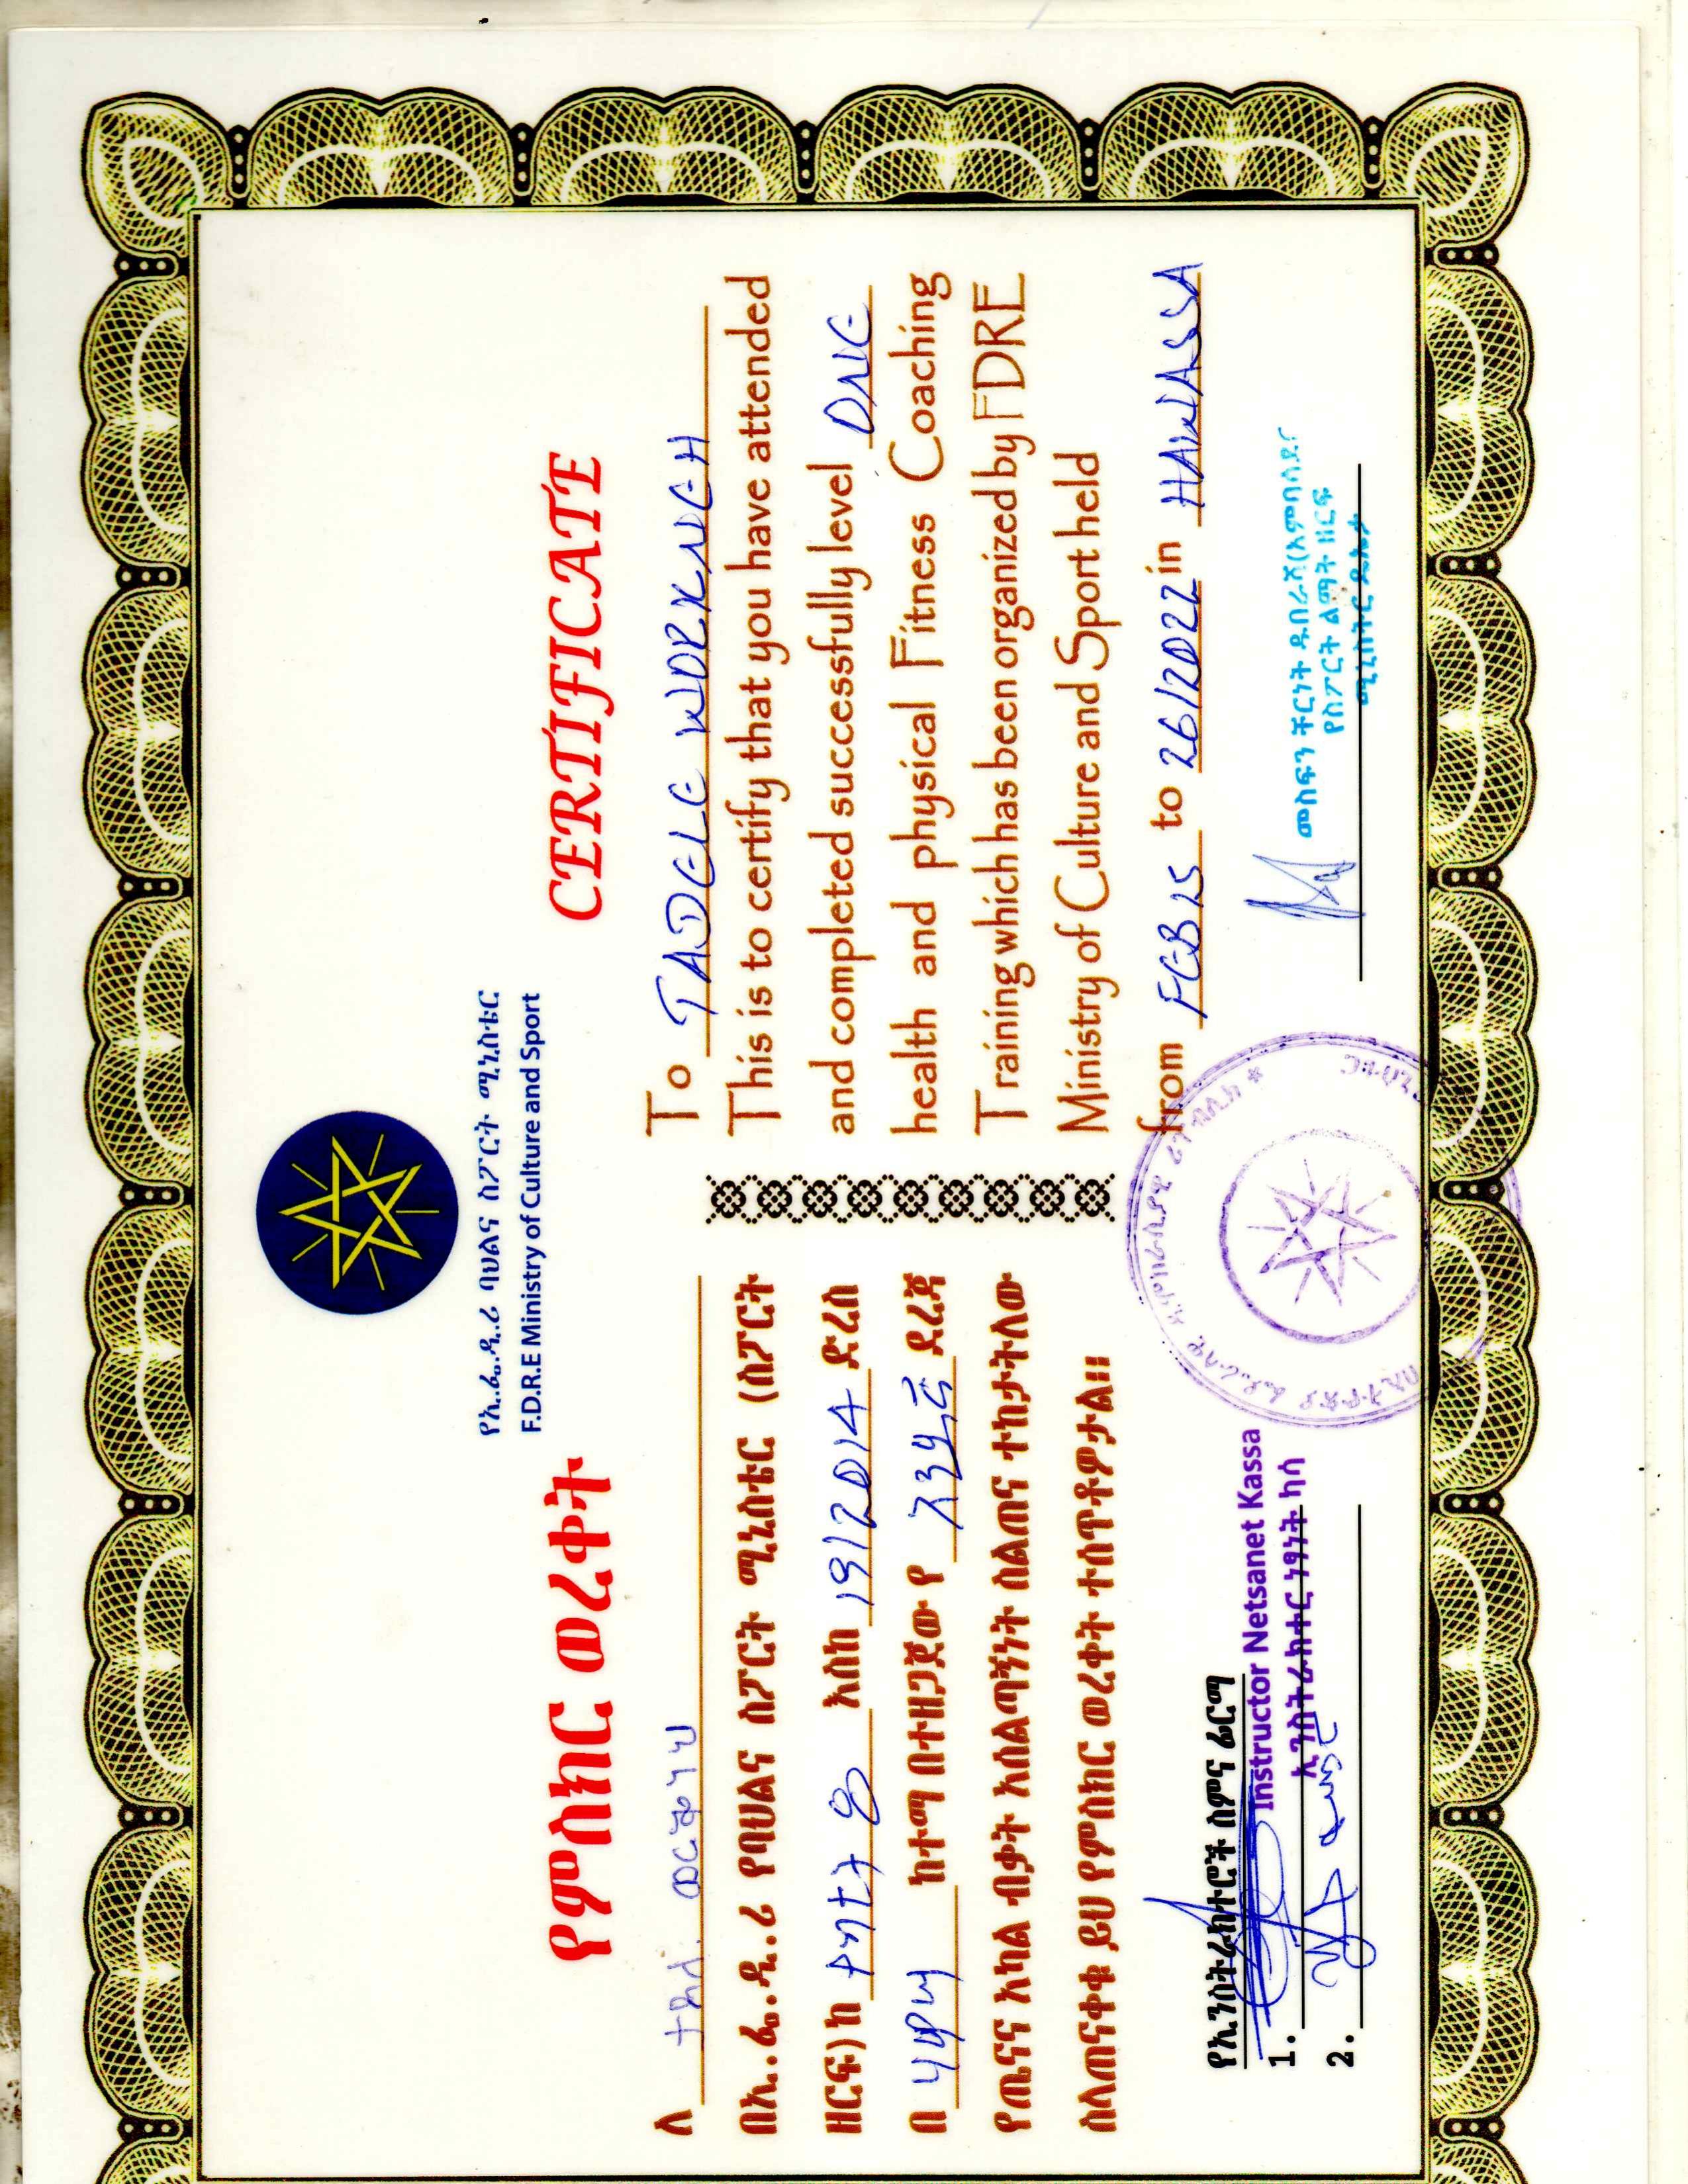 የኢ.ፌ.ዲ.ሪ ባህልና ስፖርት ሚኒስቴር
F.D.R.E Ministry of Culture and Sport
የምስክር ወረቀት
ለ ታደለ ወርቅነህ
በኢ.ፌ.ዲ.ሪ የባህልና ስፖርት ሚኒስቴር (ስፖርት
ዘርፍ) ከ የካቲት 8 እስከ 19/2014 ድረስ
በ ሃዋሣ ከተማ በተዘጋጀው የ አንደኛ ደረጃ
የጤናና አካል ብቃት አሰልጣኝነት ስልጠና ተከታትለው
ስላጠናቀቁ ይህ የምስክር ወረቀት ተሰጥቶዎታል።
የኢንስትራክተሮች ስምና ፊርማ
Instructor Netsanet Kassa
1. ኢንስትራክተር ነፃነት ካሳ
2.
CERTIFICATE
To TADELE WORKNEH
This is to certify that you have attended
and completed successfully level ONE
health and physical Fitness Coaching
Training which has been organized by FDRE
Ministry of Culture and Sport held
from FEB 15 to 26/2022 in HAWASSA
መስፍን ቸርነት ደበራሽ(አምባሳደር
የስፖርት ልማት ዘርፍ
ሚኒስትር ዴኤታ